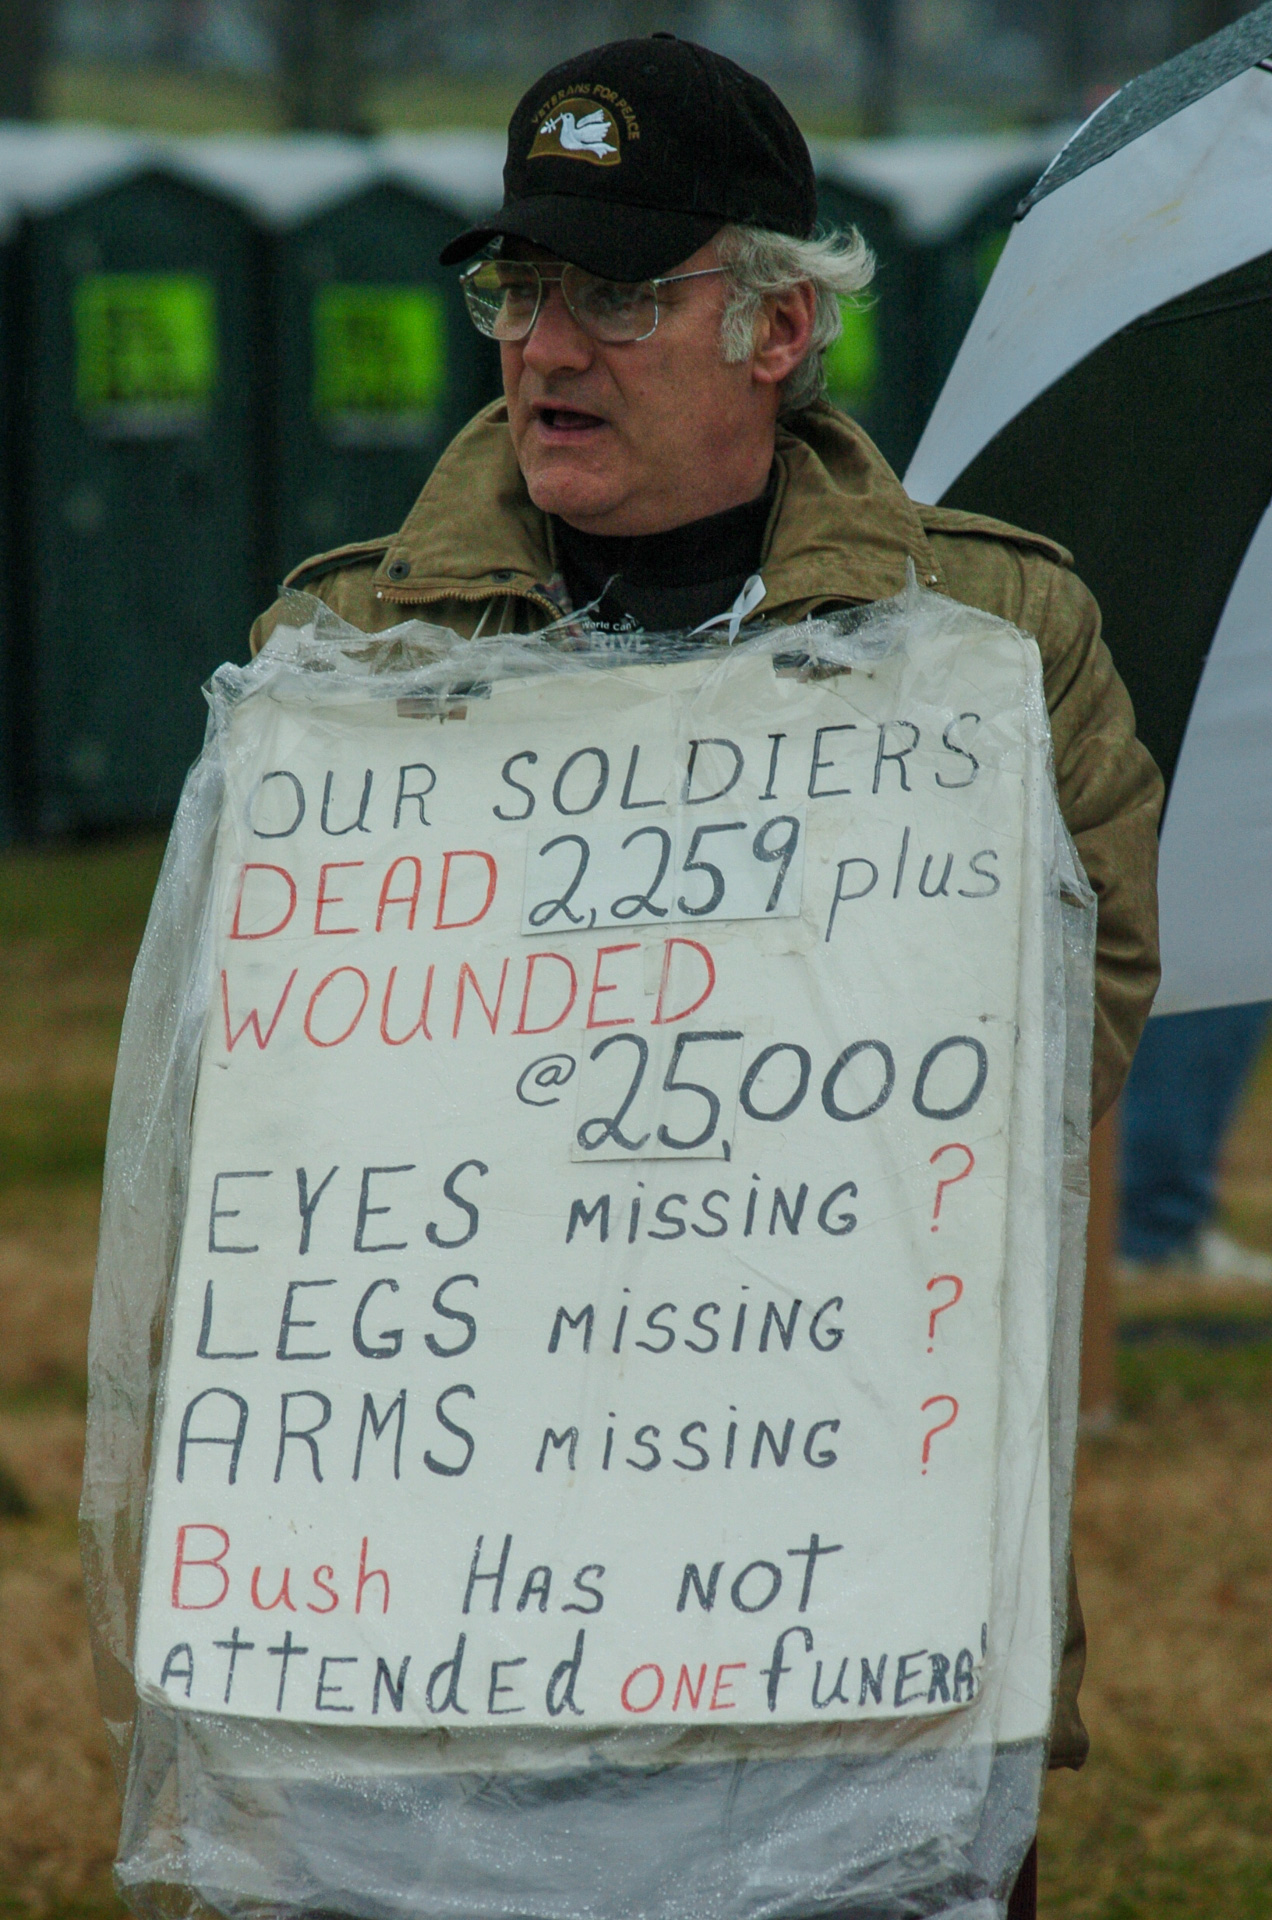 VETERANS FOR PEACE
World Can
RIVE
OUR SOLDIERS
DEAD 2,259 plus
WOUNDED
@25,000
EYES MISSING ?
LEGS MISSING ?
ARMS MISSING ?
Bush HAS NOT
ATTENDED ONE FUNERAL